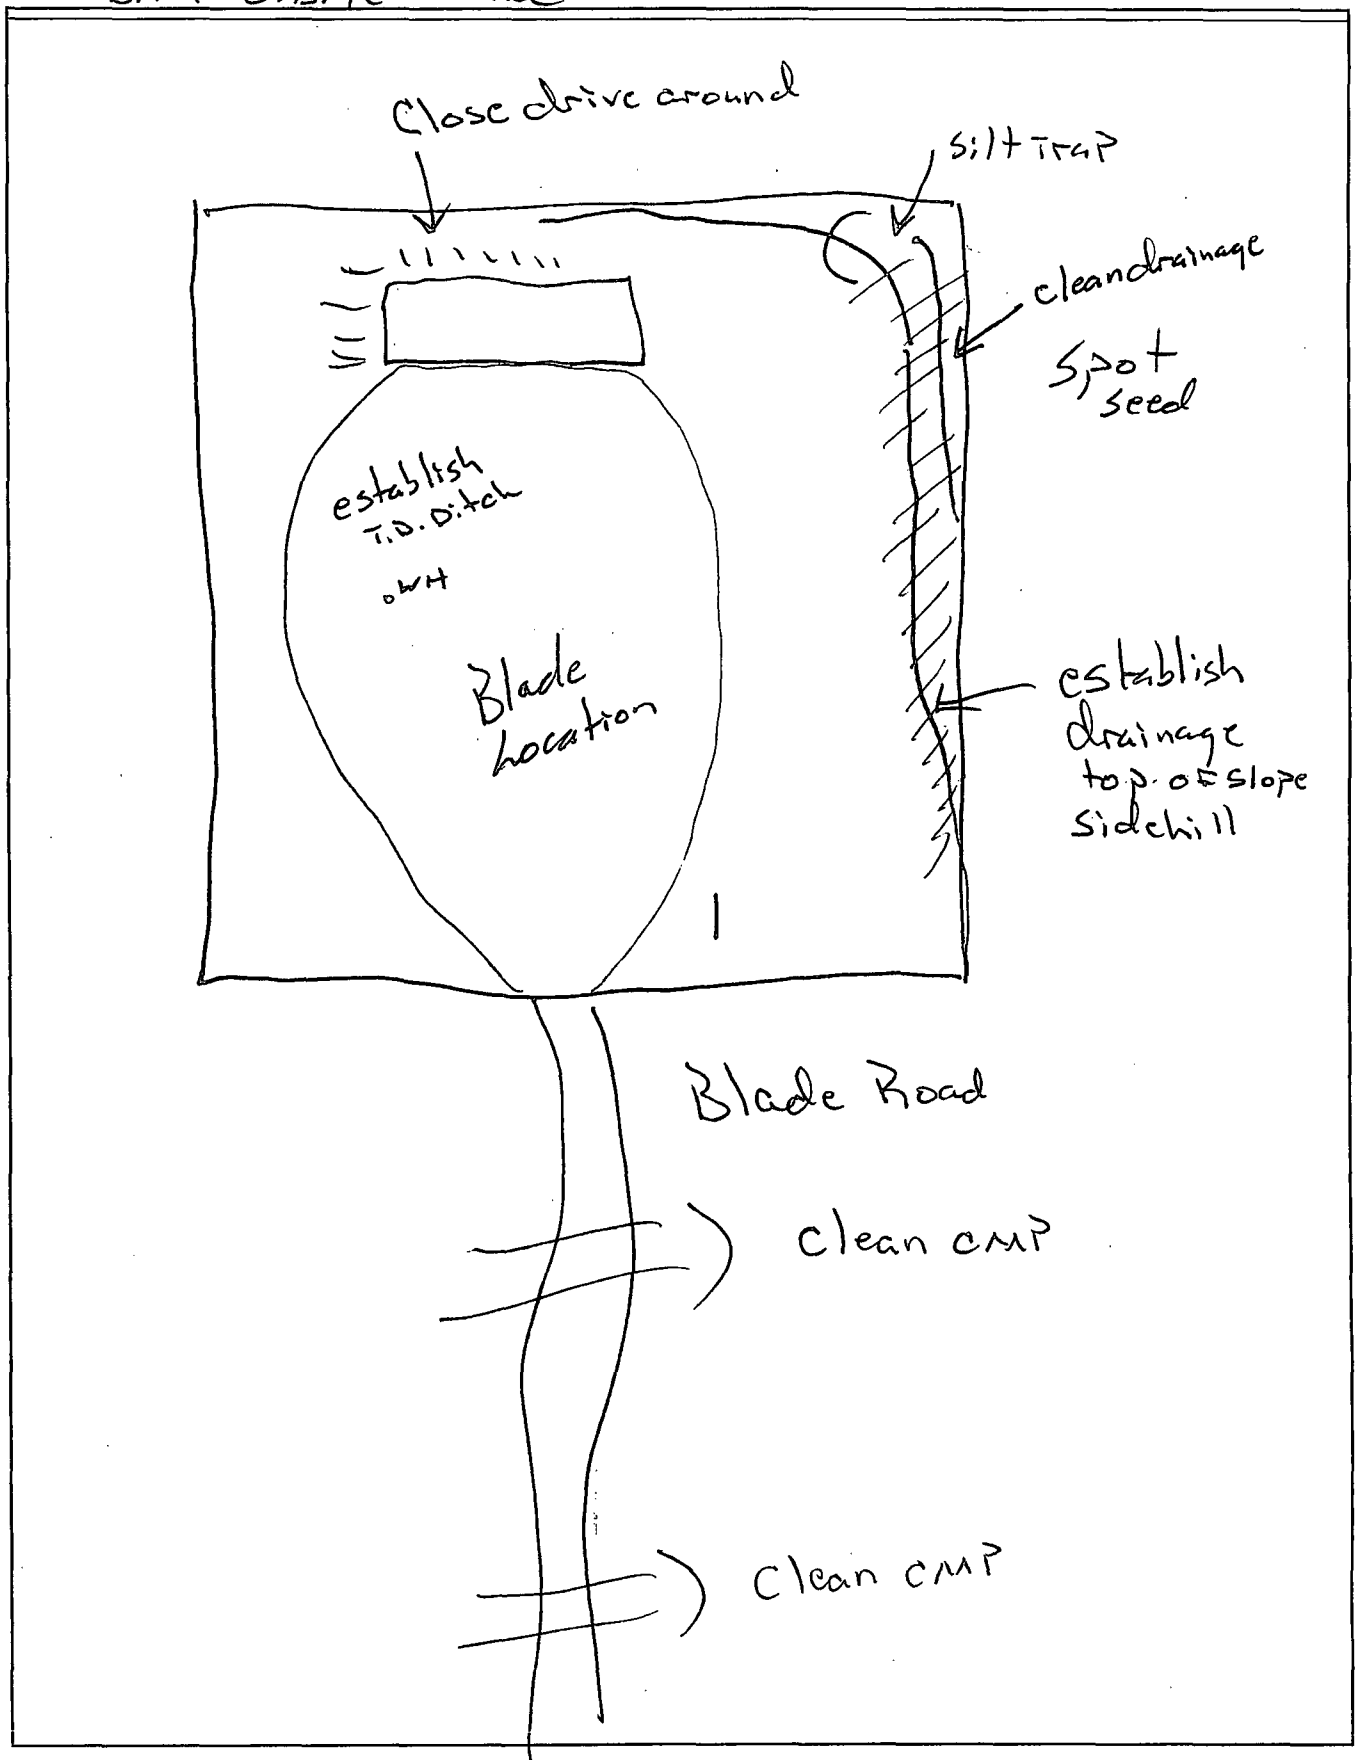 Close drive around
silt Trap
clean drainage
spot
seed
establish
T.D. Ditch
WH
Blade
Location
establish
drainage
top of slope
sidehill
Blade Road
Clean CMP
Clean CMP